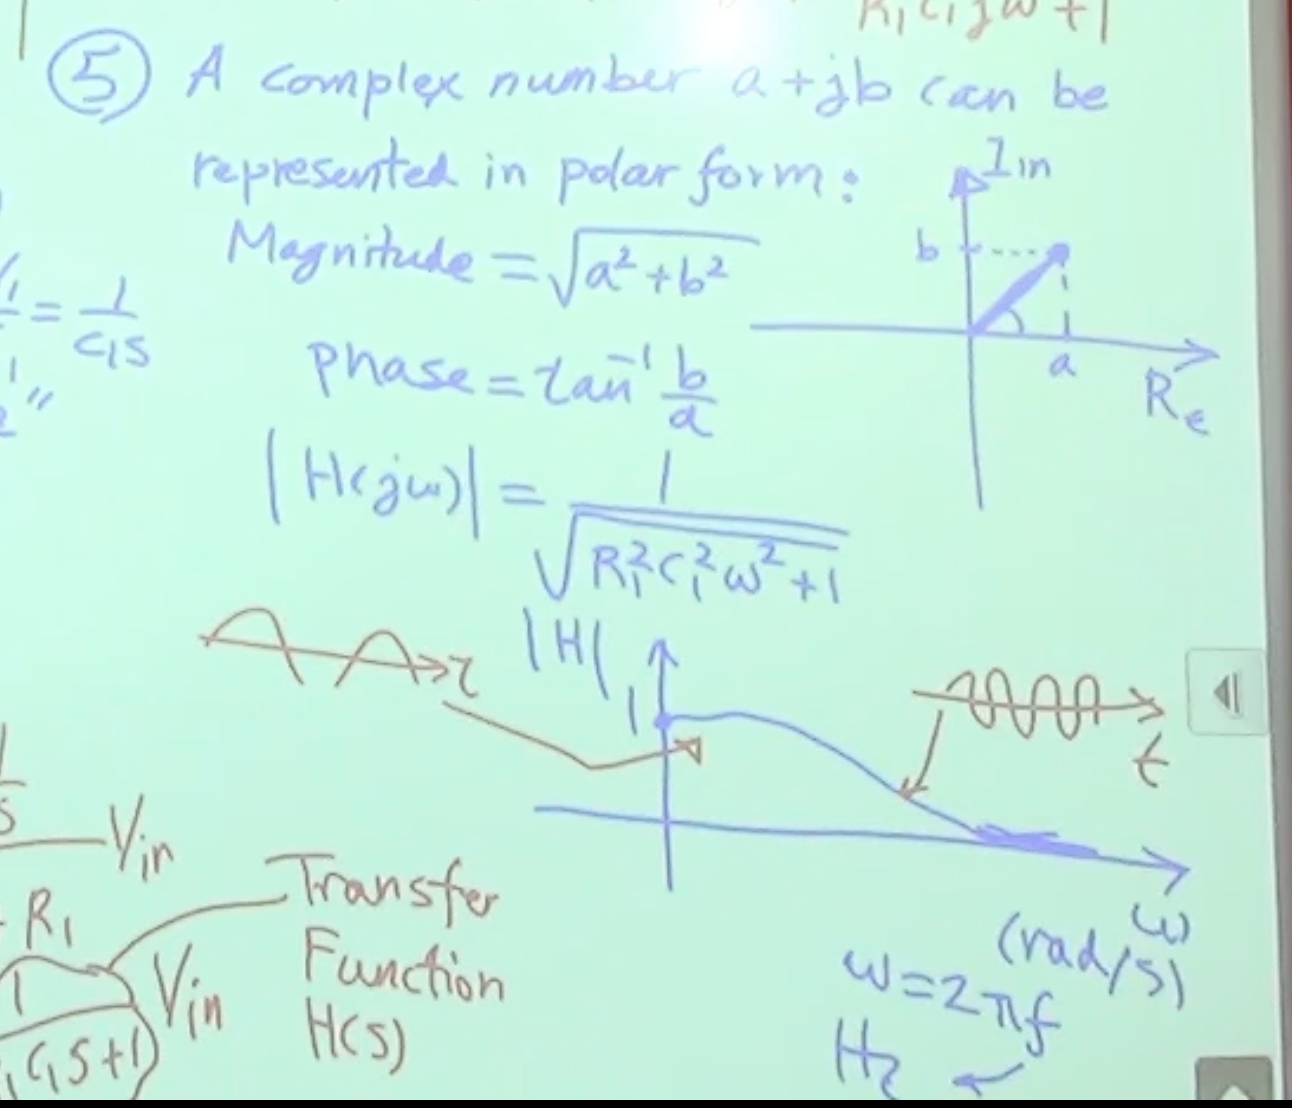 R₁C₁jω+1
⑤ A complex number a+jb can be
represented in polar form:
Magnitude = √(a²+b²)
Im
b
a
Re
= 1/(C₁s)
phase = tan⁻¹ b/a
|H(jω)| = 1/√(R₁²C₁²ω²+1)
|H|
1
t
t
ω
(rad/s)
ω=2πf
Hz
Vin
R₁
Vin
C₁S+1
Transfer
Function
H(s)